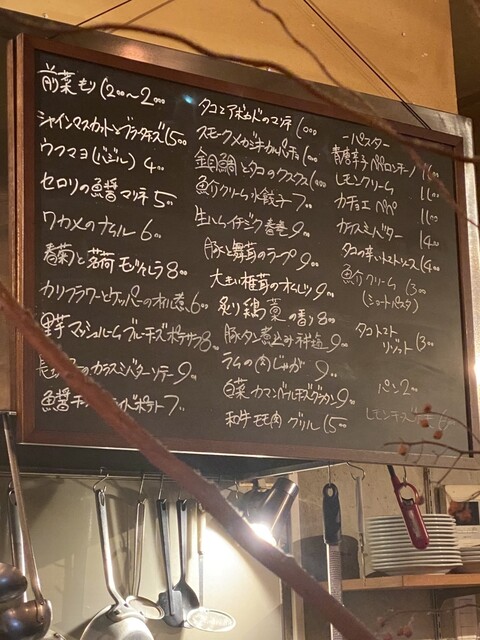 前菜もり 1200〜2000
シャインマスカットとブラータチーズ 1500
ウフマヨ(バジル) 400
セロリの魚醤マリネ 500
ワカメのナムル 600
春菊と茗荷 モッツァレラ 800
カリフラワーとケッパーのオイル煮 600
里芋 マッシュルーム ブルーチーズ ポテサラ 800
カラスミバターソテー 900
魚醤 ポテト 700
タコとアボカドのマリネ 1000
スモークメカジキ カルパッチョ 1000
金目鯛とタコのクスクス 1000
魚介クリーム水餃子 700
生ハム イチジク 春巻 900
豚と舞茸のラープ 900
大きい椎茸のオムレツ 900
炙り鶏 藁の香り 800
豚タン煮込み 900
ラムの肉じゃが 900
白菜 カマンベールチーズグラタン 900
和牛モモ肉 グリル 1500
-パスター
青唐辛子ペペロンチーノ 1100
レモンクリーム 1100
カチョエペペ 1100
カラスミバター 1400
タコの辛いトマトソース 1400
魚介クリーム 1300
(ショートパスタ)
タコトマト
リゾット 1300
パン 200
レモンチーズ